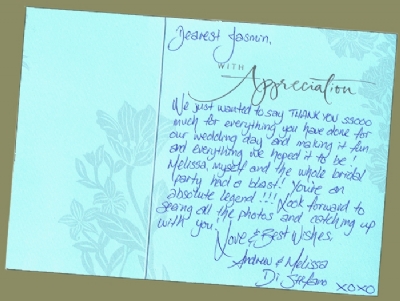 Dearest Jasmin,
WITH
Appreciation
We just wanted to say THANK YOU SSOOO
much for everything you have done for
our wedding day and making it fun
and everything we hoped it to be!
Melissa, myself and the whole bridal
party had a blast! You're an
absolute legend!!! Look forward to
seeing all the photos and catching up
with you.
Love & Best Wishes,
Andrew & Melissa
Di Stefano
XOXO